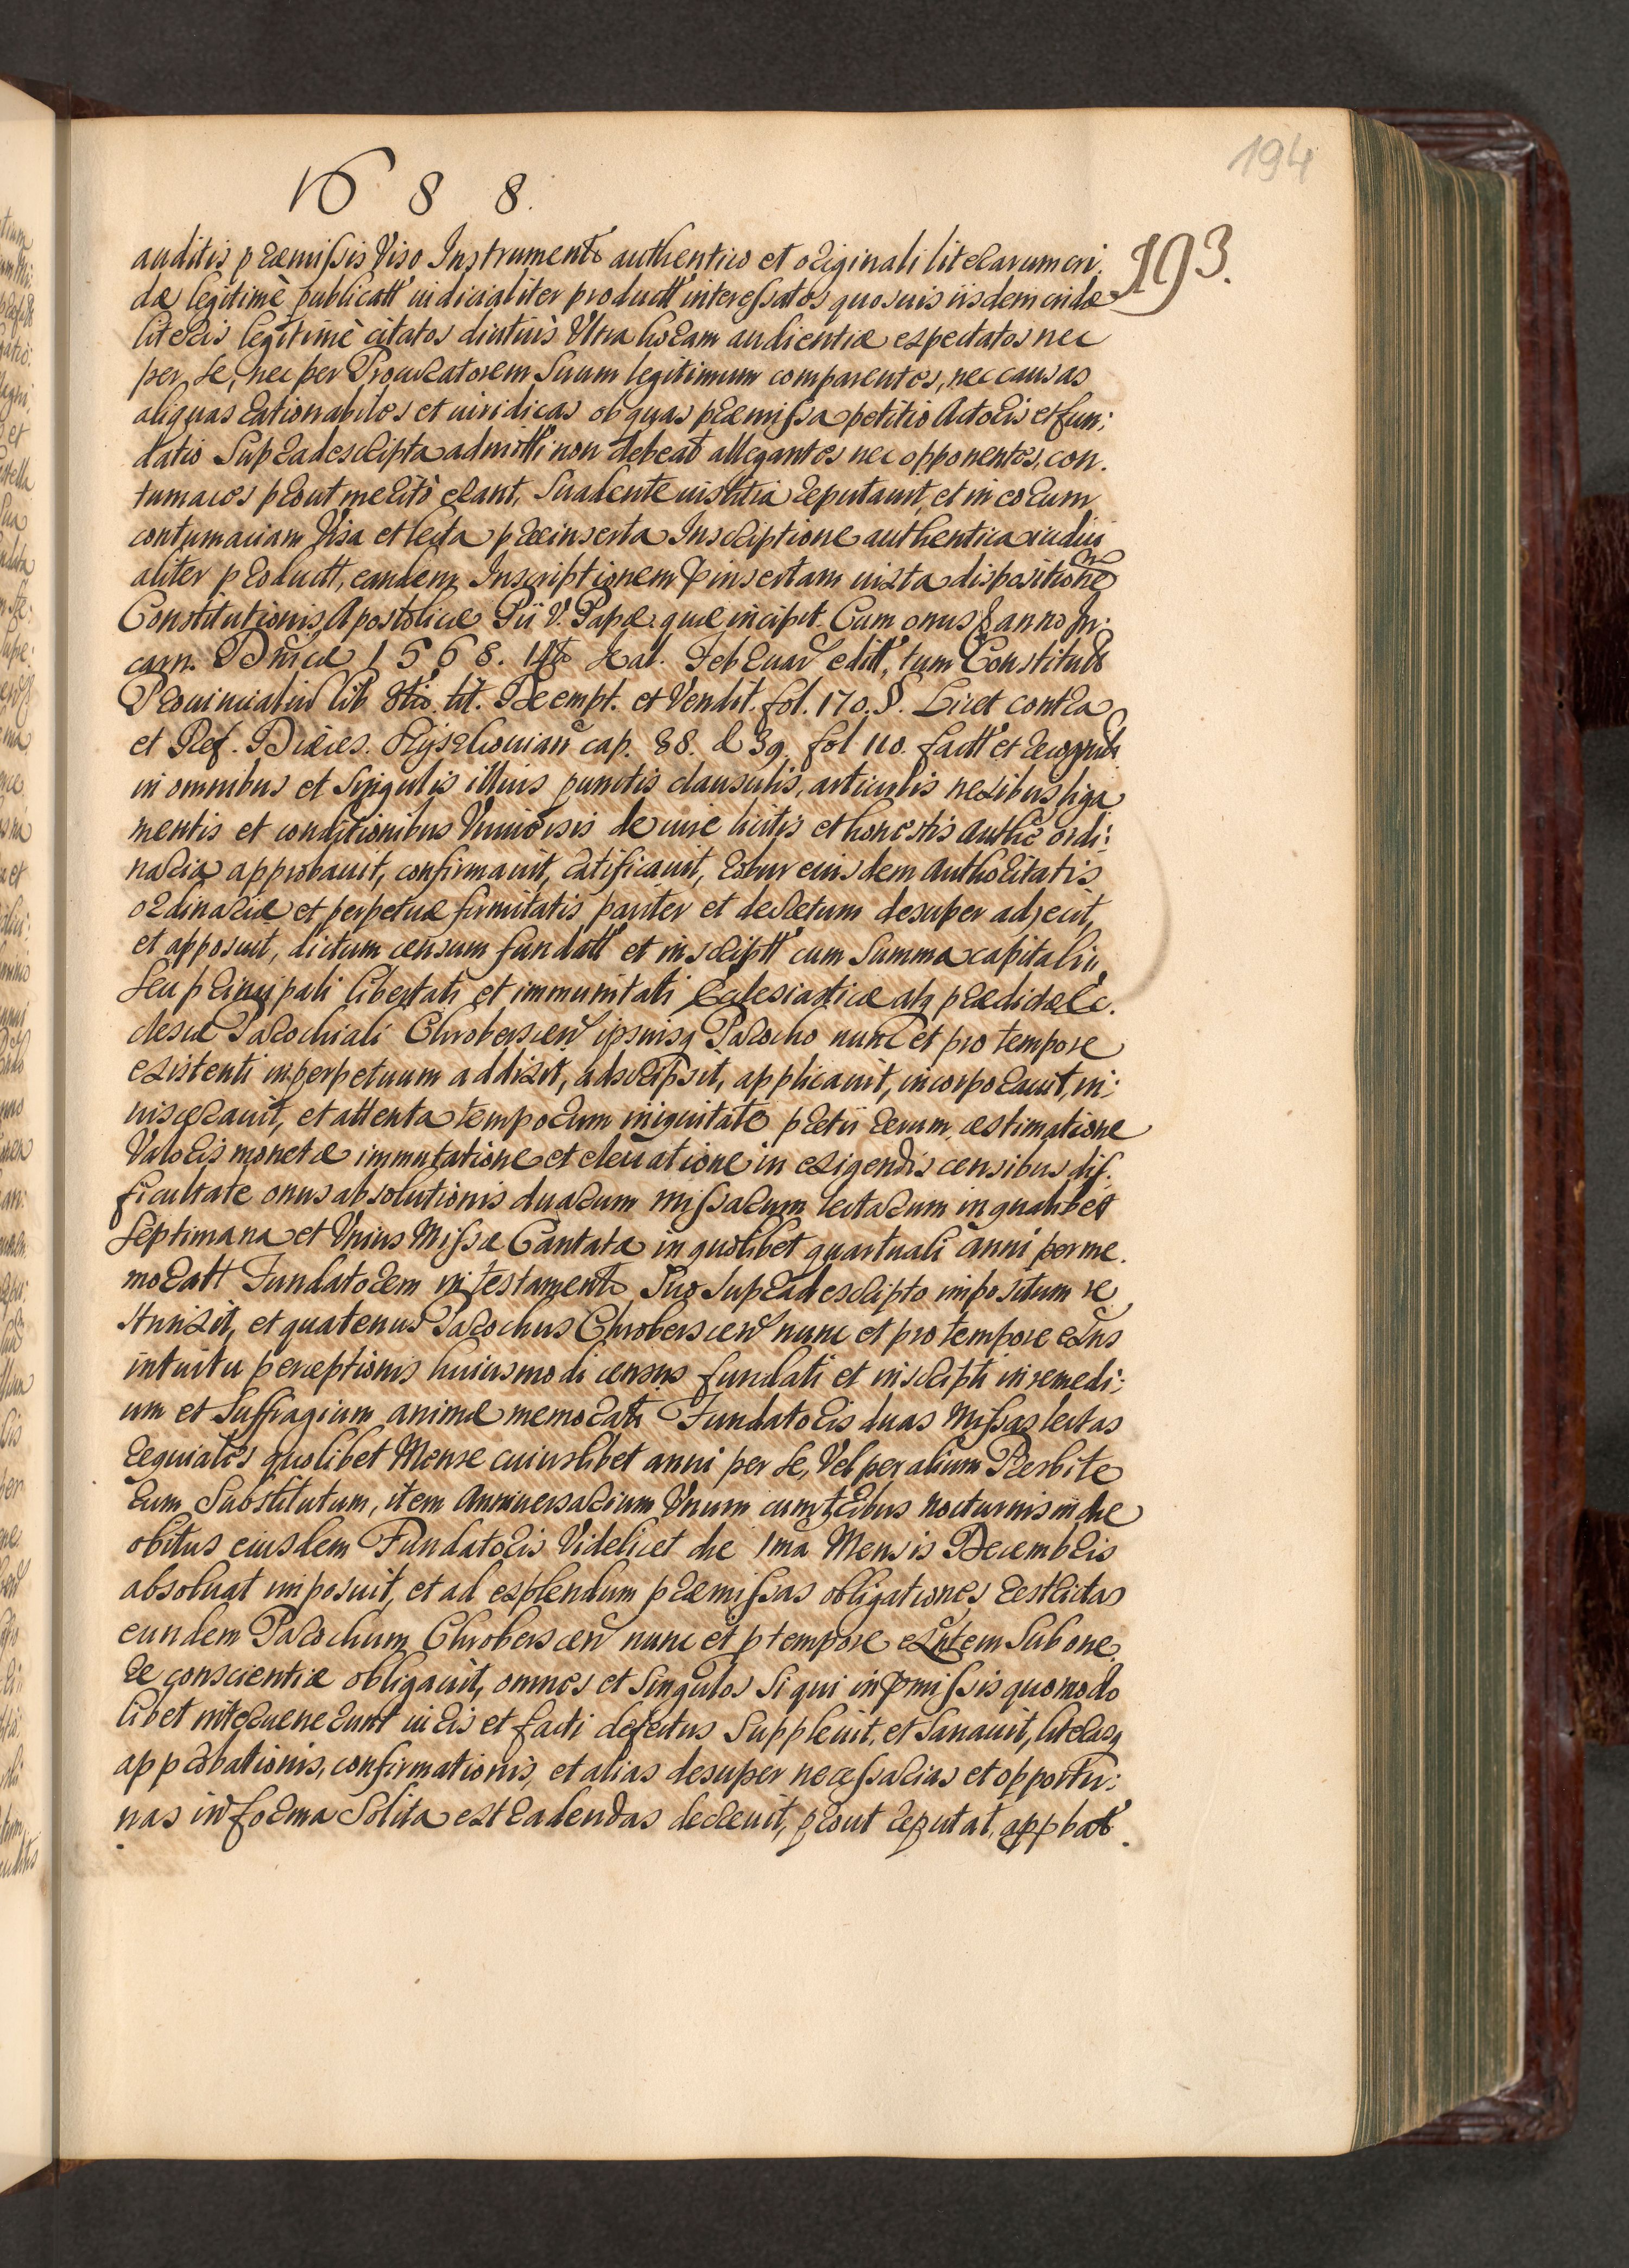 194
1688.
193.
auditis præmissis Viso Instrumento authentico et originali literarum cri:
dæ legitimè publicatt iudicialiter productt interessatos quosuis iisdem cridæ
literis legitimè citatos diutiùs Ultra horam audientiæ expectatos nec
per se, nec per Procuratorem Suum legitimum comparentes, nec causas
aliquas rationabiles et iuridicas ob quas præmissa petitio Actoris et fun:
datio Supradescripta admitti non debeat allegantes nec opponentes, con.
tumaces prout meritò erant, Suadente iustitia reputauit, et in eorum
contumaciam Visa et lecta præinserta Inscriptione authentica iudici
aliter productt, eandem Inscriptionem pinsertam iuxta dispositionẽ
Constitutionis Apostolicæ Pii V. Papæ quæ incipit Cum onus anno In:
carn. Dñicæ 1568. 14to Kal. Februar edit, tum Constitut
Prouincialiu lib. 3tio. tit. De empt. et Vendit. fol. 170. §. Licet contra
et Ref. Diæces. cap. 38. & 39. fol 110. factt et recognitt
in omnibus et Singulis illius punctis clausulis, articulis nexibus liga
mentis et conditionibus Vniuersis de iure licitis et honestis Authẽ ordi:
naria approbauit, confirmauit, ratificauit, robur eiusdem Authoritatis
ordinariæ et perpetuæ firmitatis pariter et decretum desuper adjecit,
et apposuit, dictum censum fundatt et inscriptt cum Summa capitali,
Seu principali libertati et immunitati Ecclesiasticæ atq prædictæ Ec.
clesiæ Parochiali Chroberscen ipsiusq Parocho nunc et pro tempore
existenti in perpetuum addixit, adscripsit, applicauit, incorporauit, in:
uiscerauit, et attenta temporum iniquitate pretii rerum æstimatione
Valoris monetæ immutatione et eleuatione in exigendis censibus dif.
ficultate onus absolutionis duarum missarum lectarum in qualibet
Septimana et Vnius Missæ Cantatæ in quolibet quartuali anni per me.
moratt Fundatorem in testamento Suo Supradescripto impositum re
strinxit, et quatenus Parochus Chroberscen nunc et pro tempore exñs
intuitu perceptionis huiusmodi census fundati et inscripti in remedi:
um et Suffragium animæ memorati Fundatoris duas Missas lectas
requiales quolibet Mense cuiuslibet anni per se, Vel per alium Presbite
rum Substitutum, item Anniuersarium Vnum cum tribus nocturnis in die
obitus eiusdem Fundatoris Videlicet die 1mâ Mensis Decembris
absoluat imposuit, et ad explendum præmissas obligationes restrictas
eundem Parochum Chroberscen nunc et p tempore exñtem Sub one.
re conscientiæ obligauit, omnes et Singulos Si qui in pmissis quomodo
libet interuenerunt iuris et facti defectus Suppleuit, et Sanauit, literasq
approbationis, confirmationis, et alias desuper necessarias et opportu:
nas in forma Solita extradendas decreuit, prout reputat, appbat.